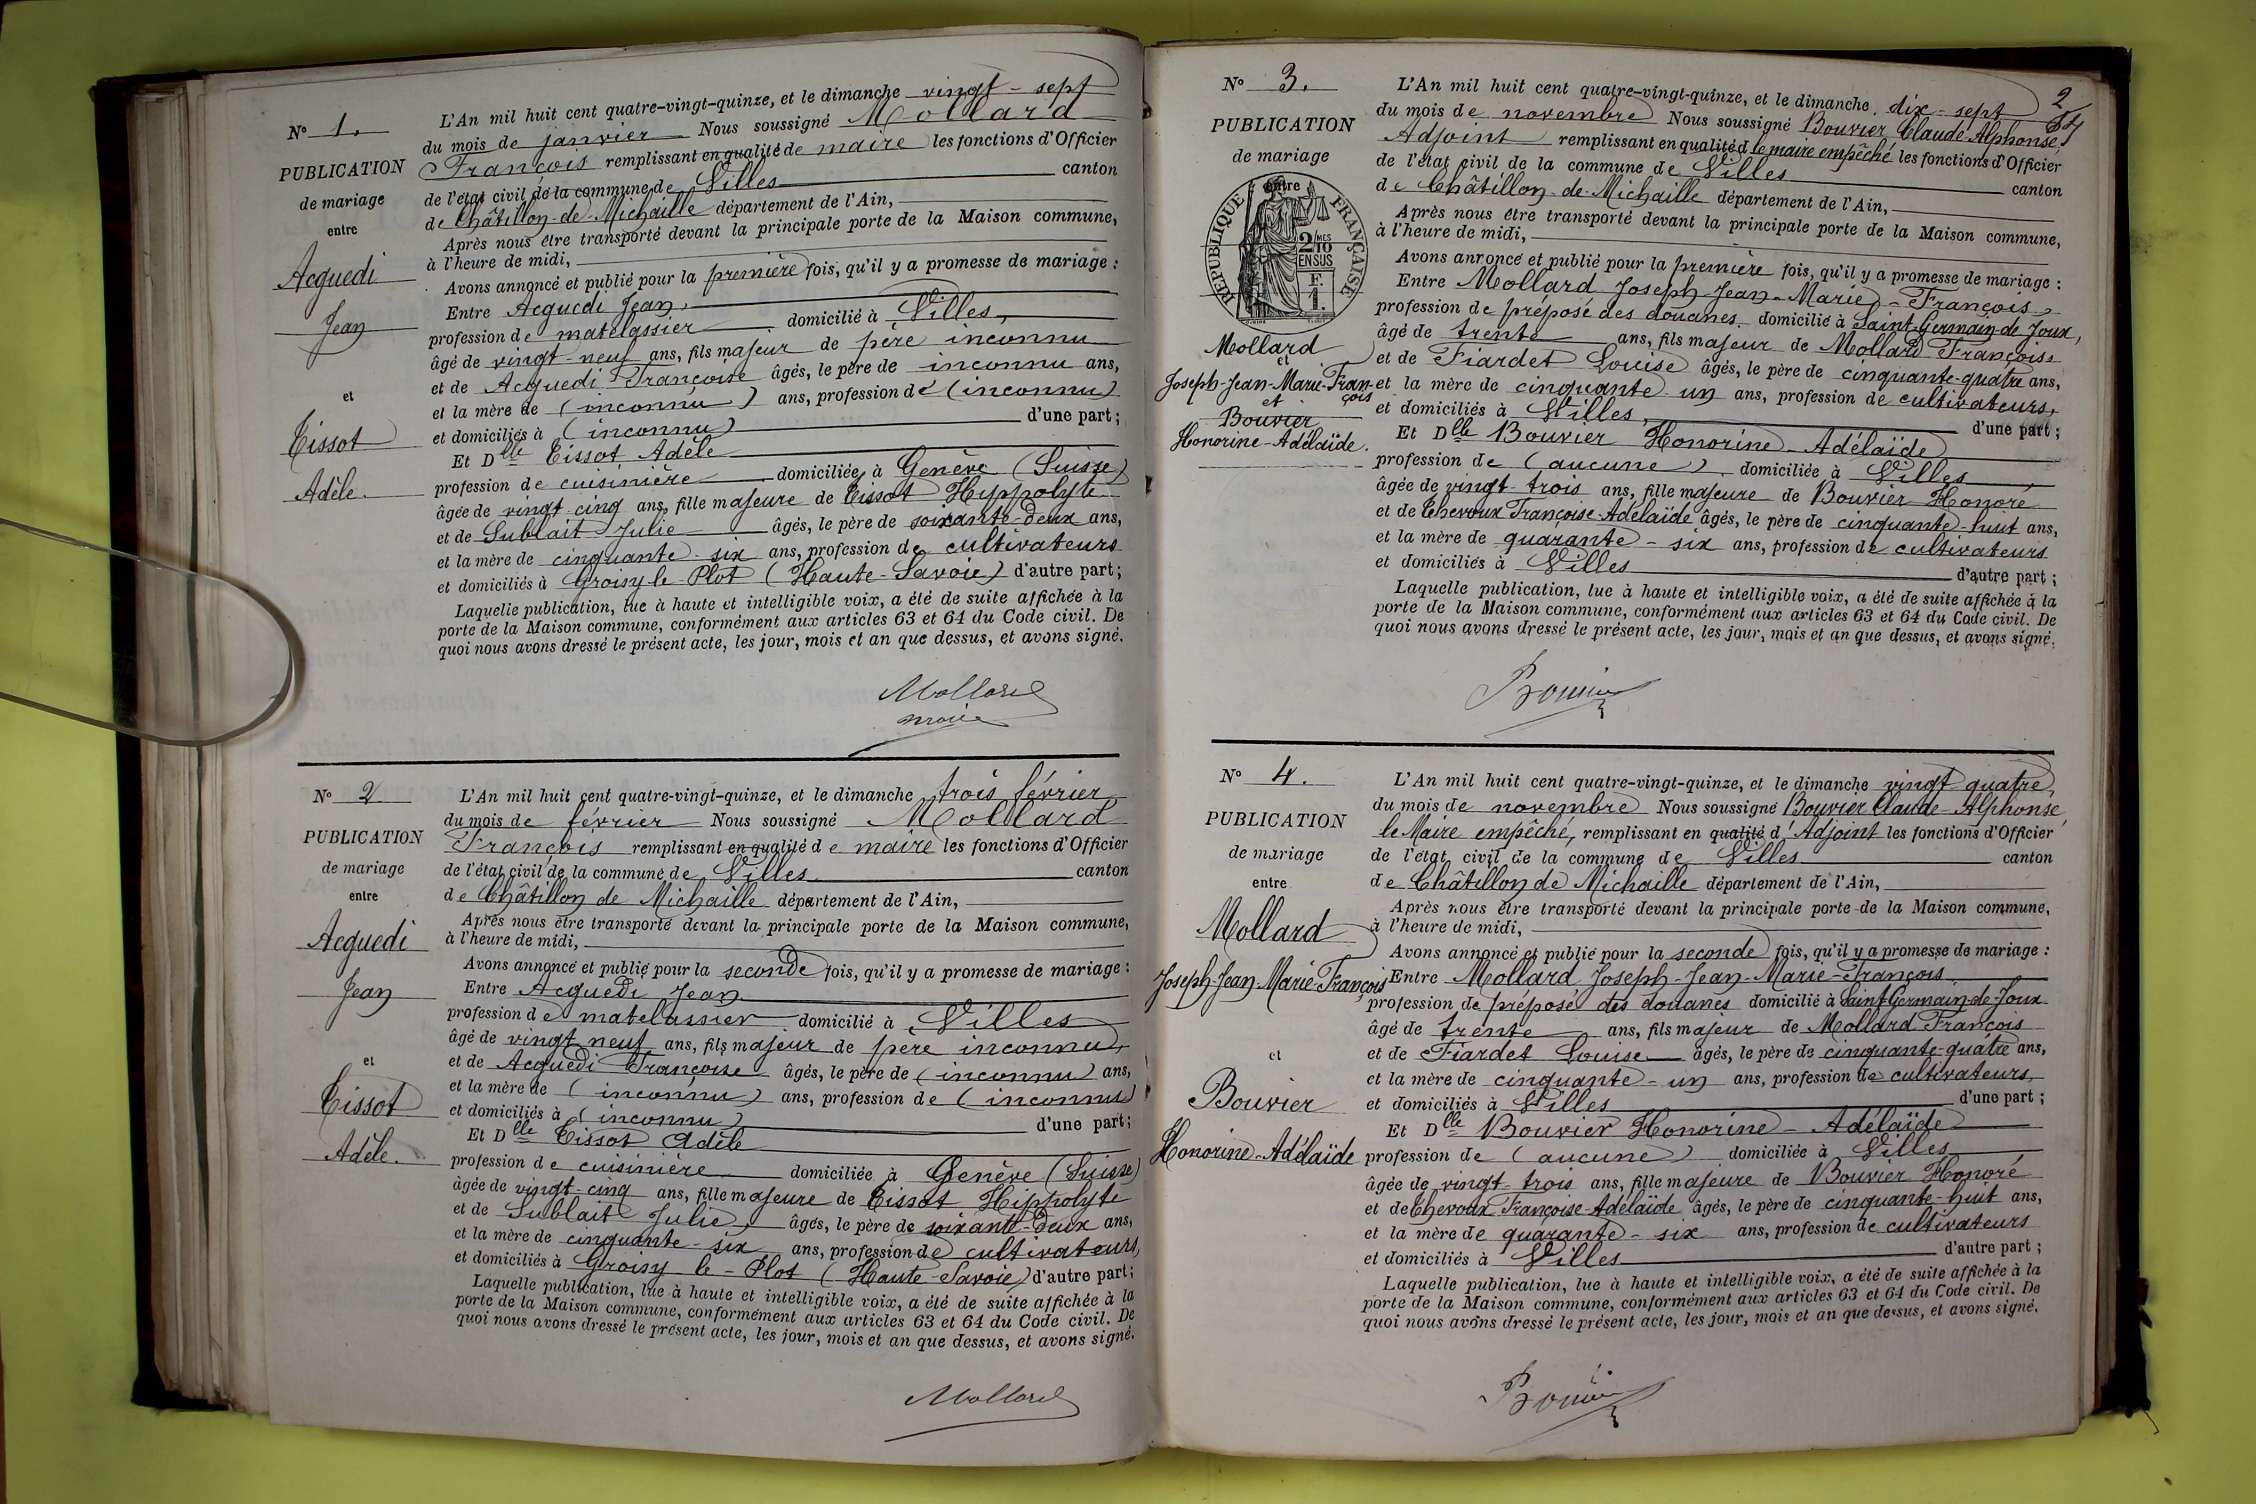 N° 1.
PUBLICATION
de mariage
entre
Acquedi
Jean
et
Tissot
Adèle.
L'An mil huit cent quatre-vingt-quinze, et le dimanche vingt-sept
du mois de janvier Nous soussigné Mollard
François remplissant en qualité de maire les fonctions d'Officier
de l'état civil de la commune de Villes canton
de Châtillon-de-Michaille département de l'Ain,
Après nous être transporté devant la principale porte de la Maison commune,
à l'heure de midi,
Avons annoncé et publié pour la première fois, qu'il y a promesse de mariage :
Entre Acquedi Jean,
profession de matelassier domicilié à Villes,
âgé de vingt-neuf ans, fils majeur de père inconnu
et de Acquedi Françoise âgés, le père de inconnu ans,
et la mère de (inconnu) ans, profession de (inconnu)
et domiciliés à (inconnu) d'une part ;
Et Dlle Tissot Adèle
profession de cuisinière domiciliée à Genève (Suisse)
âgée de vingt-cinq ans, fille majeure de Tissot Hyppolyte
et de Sublait Julie âgés, le père de soixante-deux ans,
et la mère de cinquante-six ans, profession de cultivateurs
et domiciliés à Groisy-le-Plot (Haute-Savoie) d'autre part ;
Laquelle publication, lue à haute et intelligible voix, a été de suite affichée à la
porte de la Maison commune, conformément aux articles 63 et 64 du Code civil. De
quoi nous avons dressé le présent acte, les jour, mois et an que dessus, et avons signé.
Mollard
maire
N° 2
PUBLICATION
de mariage
entre
Acquedi
Jean
et
Tissot
Adèle.
L'An mil huit cent quatre-vingt-quinze, et le dimanche trois février
du mois de février Nous soussigné Mollard
François remplissant en qualité de maire les fonctions d'Officier
de l'état civil de la commune de Villes canton
de Châtillon de Michaille département de l'Ain,
Après nous être transporté devant la principale porte de la Maison commune,
à l'heure de midi,
Avons annoncé et publié pour la seconde fois, qu'il y a promesse de mariage :
Entre Acquedi Jean
profession de matelassier domicilié à Villes
âgé de vingt neuf ans, fils majeur de père inconnu,
et de Acquedi Françoise âgés, le père de (inconnu) ans,
et la mère de (inconnu) ans, profession de (inconnus)
et domiciliés à (inconnu) d'une part ;
Et Dlle Tissot Adèle
profession de cuisinière domiciliée à Genève (Suisse)
âgée de vingt-cinq ans, fille majeure de Tissot Hippolyte
et de Sublait Julie, âgés, le père de soixante-deux ans,
et la mère de cinquante-six ans, profession de cultivateurs,
et domiciliés à Groisy le-Plot (Haute-Savoie) d'autre part ;
Laquelle publication, lue à haute et intelligible voix, a été de suite affichée à la
porte de la Maison commune, conformément aux articles 63 et 64 du Code civil. De
quoi nous avons dressé le présent acte, les jour, mois et an que dessus, et avons signé.
Mollard
2
N° 3.
PUBLICATION
de mariage
entre
RÉPUBLIQUE FRANÇAISE
2/10 MES
EN SUS
F.
1.
Mollard
et
Joseph-Jean-Marie-François
et
Bouvier
Honorine-Adélaïde.
L'An mil huit cent quatre-vingt-quinze, et le dimanche dix-sept
du mois de novembre Nous soussigné Bouvier Claude-Alphonse,
Adjoint remplissant en qualité d le maire empêché les fonctions d'Officier
de l'état civil de la commune de Villes canton
de Châtillon-de-Michaille département de l'Ain,
Après nous être transporté devant la principale porte de la Maison commune,
à l'heure de midi,
Avons annoncé et publié pour la première fois, qu'il y a promesse de mariage :
Entre Mollard Joseph-Jean-Marie-François,
profession de préposé des douanes domicilié à Saint-Germain-de-Joux,
âgé de trente ans, fils majeur de Mollard François
et de Fiardet Louise âgés, le père de cinquante-quatre ans,
et la mère de cinquante-un ans, profession de cultivateurs,
et domiciliés à Villes, d'une part ;
Et Dlle Bouvier Honorine-Adélaïde
profession de (aucune) domiciliée à Villes
âgée de vingt-trois ans, fille majeure de Bouvier Honoré
et de Chevoux Françoise-Adélaïde âgés, le père de cinquante-huit ans,
et la mère de quarante-six ans, profession de cultivateurs
et domiciliés à Villes d'autre part ;
Laquelle publication, lue à haute et intelligible voix, a été de suite affichée à la
porte de la Maison commune, conformément aux articles 63 et 64 du Code civil. De
quoi nous avons dressé le présent acte, les jour, mois et an que dessus, et avons signé.
Bouvier
N° 4.
PUBLICATION
de mariage
entre
Mollard
Joseph-Jean-Marie-François
et
Bouvier
Honorine-Adélaïde
L'An mil huit cent quatre-vingt-quinze, et le dimanche vingt quatre,
du mois de novembre Nous soussigné Bouvier Claude-Alphonse,
le Maire empêché, remplissant en qualité d'Adjoint les fonctions d'Officier
de l'état civil de la commune de Villes canton
de Châtillon de Michaille département de l'Ain,
Après nous être transporté devant la principale porte de la Maison commune,
à l'heure de midi,
Avons annoncé et publié pour la seconde fois, qu'il y a promesse de mariage :
Entre Mollard Joseph-Jean-Marie-François
profession de préposé des douanes domicilié à Saint-Germain-de-Joux
âgé de trente ans, fils majeur de Mollard François
et de Fiardet Louise âgés, le père de cinquante-quatre ans,
et la mère de cinquante-un ans, profession de cultivateurs,
et domiciliés à Villes d'une part ;
Et Dlle Bouvier Honorine-Adélaïde
profession de (aucune) domiciliée à Villes
âgée de vingt-trois ans, fille majeure de Bouvier Honoré
et de Chevoux Françoise-Adélaïde âgés, le père de cinquante-huit ans,
et la mère de quarante-six ans, profession de cultivateurs
et domiciliés à Villes d'autre part ;
Laquelle publication, lue à haute et intelligible voix, a été de suite affichée à la
porte de la Maison commune, conformément aux articles 63 et 64 du Code civil. De
quoi nous avons dressé le présent acte, les jour, mois et an que dessus, et avons signé.
Bouvier